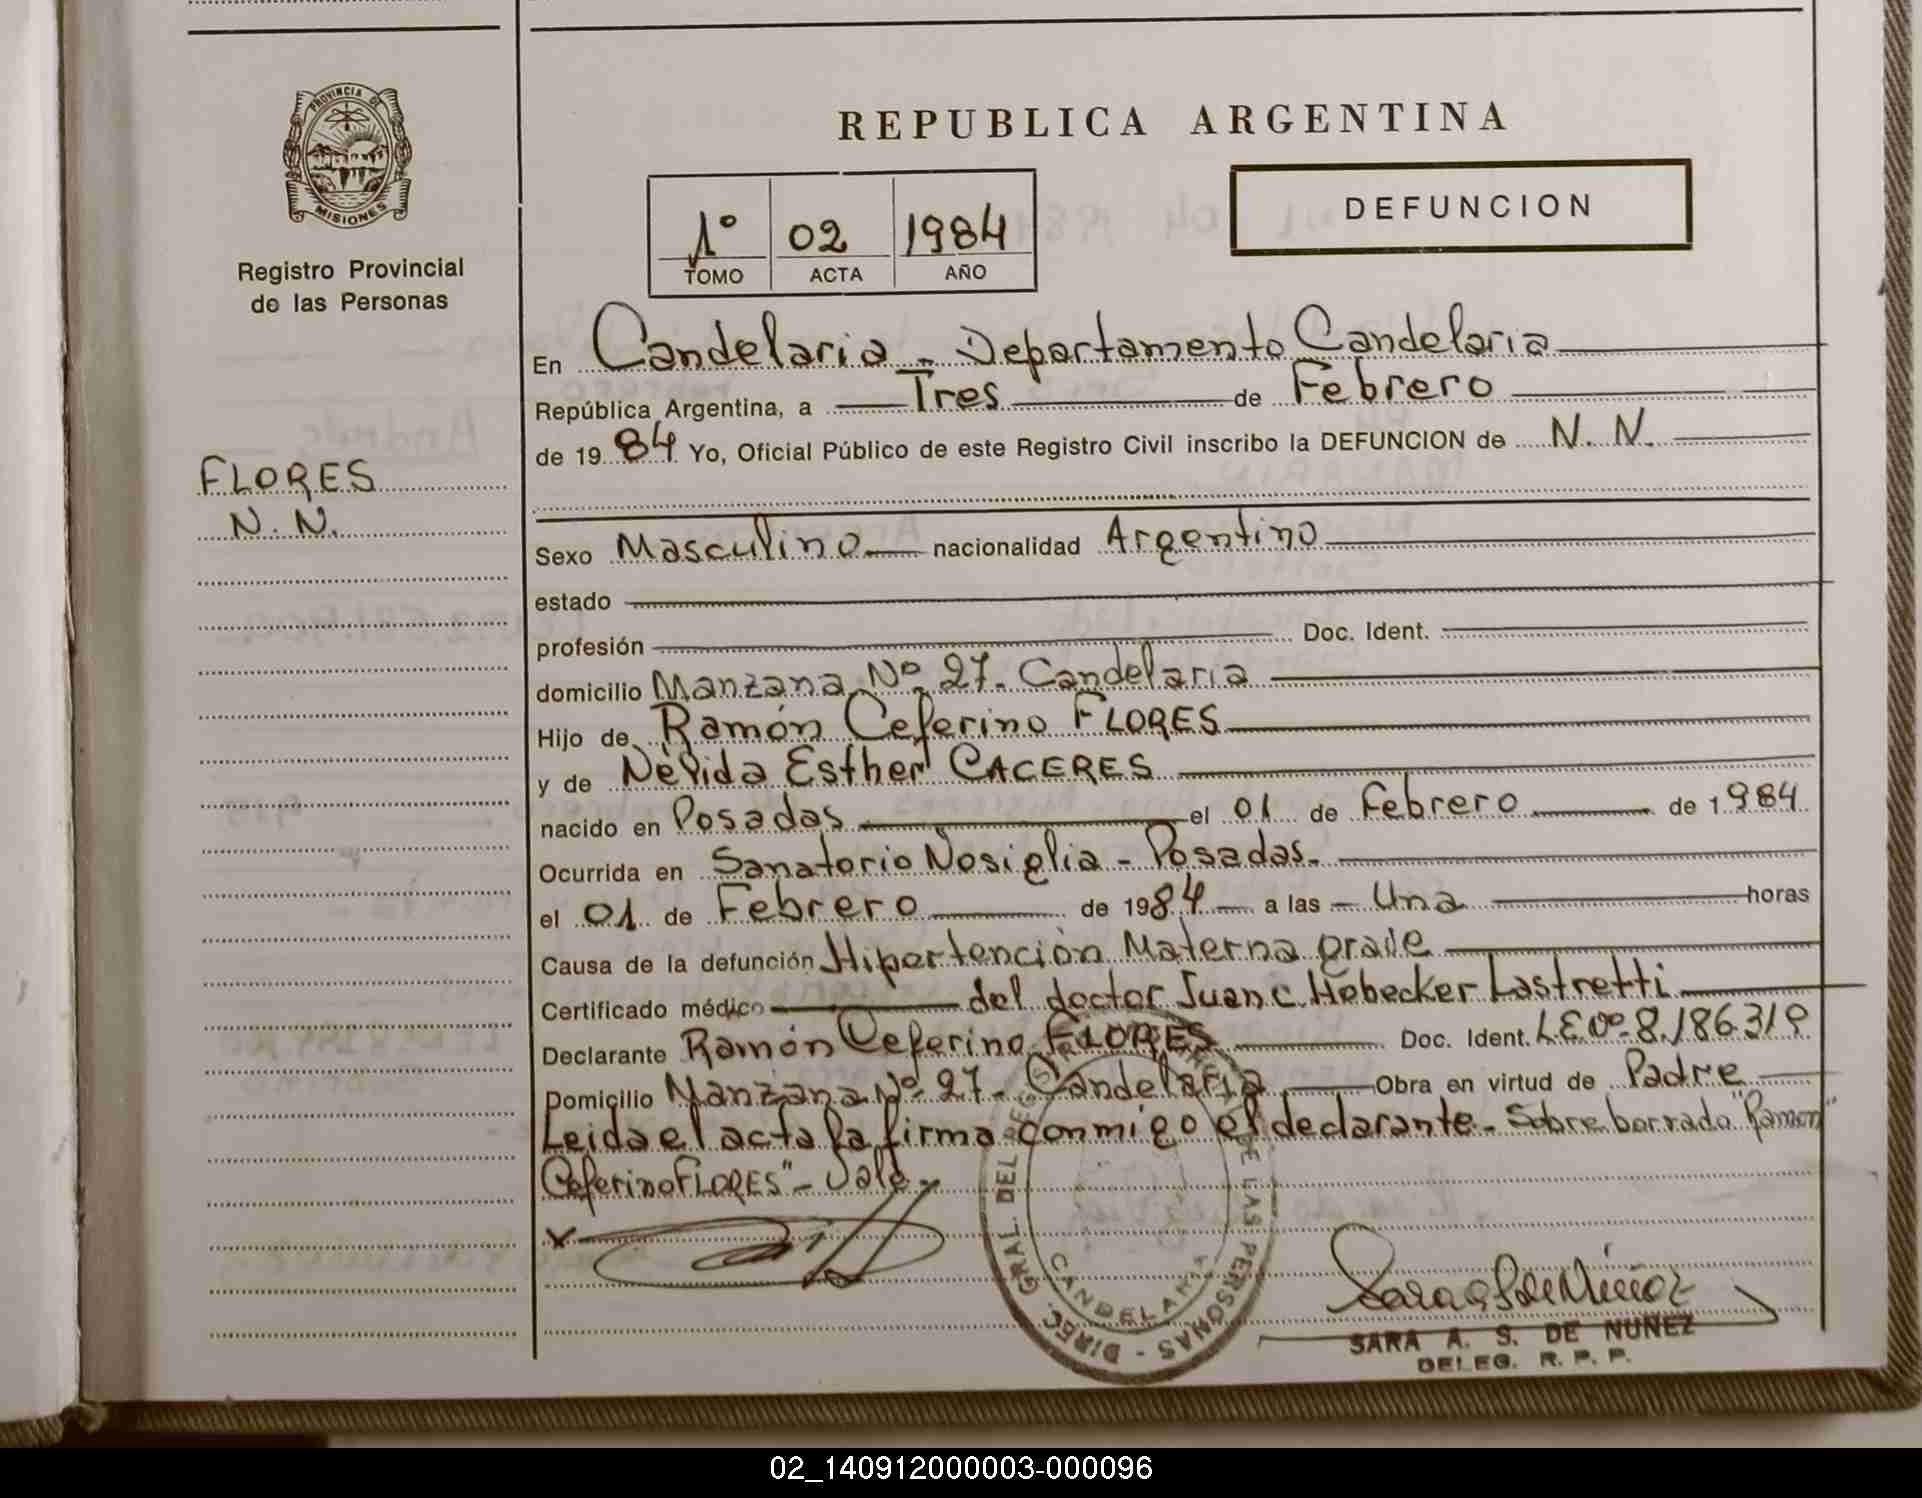 PROVINCIA DE
MISIONES
Registro Provincial
de las Personas
FLORES
N. N.
REPUBLICA ARGENTINA
1º 02 1984
TOMO ACTA AÑO
DEFUNCION
En Candelaria - Departamento Candelaria
República Argentina, a Tres de Febrero
de 1984 Yo, Oficial Público de este Registro Civil inscribo la DEFUNCION de N. N.
Sexo Masculino nacionalidad Argentino
estado
profesión Doc. Ident.
domicilio Manzana Nº 27- Candelaria
Hijo de Ramón Ceferino FLORES
y de Nélida Esther CACERES
nacido en Posadas el 01 de Febrero de 1984
Ocurrida en Sanatorio Nosiglia - Posadas.
el 01 de Febrero de 1984 a las Una horas
Causa de la defunción Hipertención Materna grave
Certificado médico del doctor Juan C. Hobecker Lastretti
Declarante Ramón Ceferino FLORES Doc. Ident. L.E.Nº 8.186.319
Domicilio Manzana Nº 27- Candelaria Obra en virtud de Padre
Leida el acta la firma conmigo el declarante - Sobre borrado "Ramon
Ceferino FLORES" - Vale -
DIREC. GRAL. DEL DE LAS PERSONAS -
CANDELARIA
Sara A S de Núñez
SARA A. S. DE NUÑEZ
DELEG. R. P. P.
02_140912000003-000096